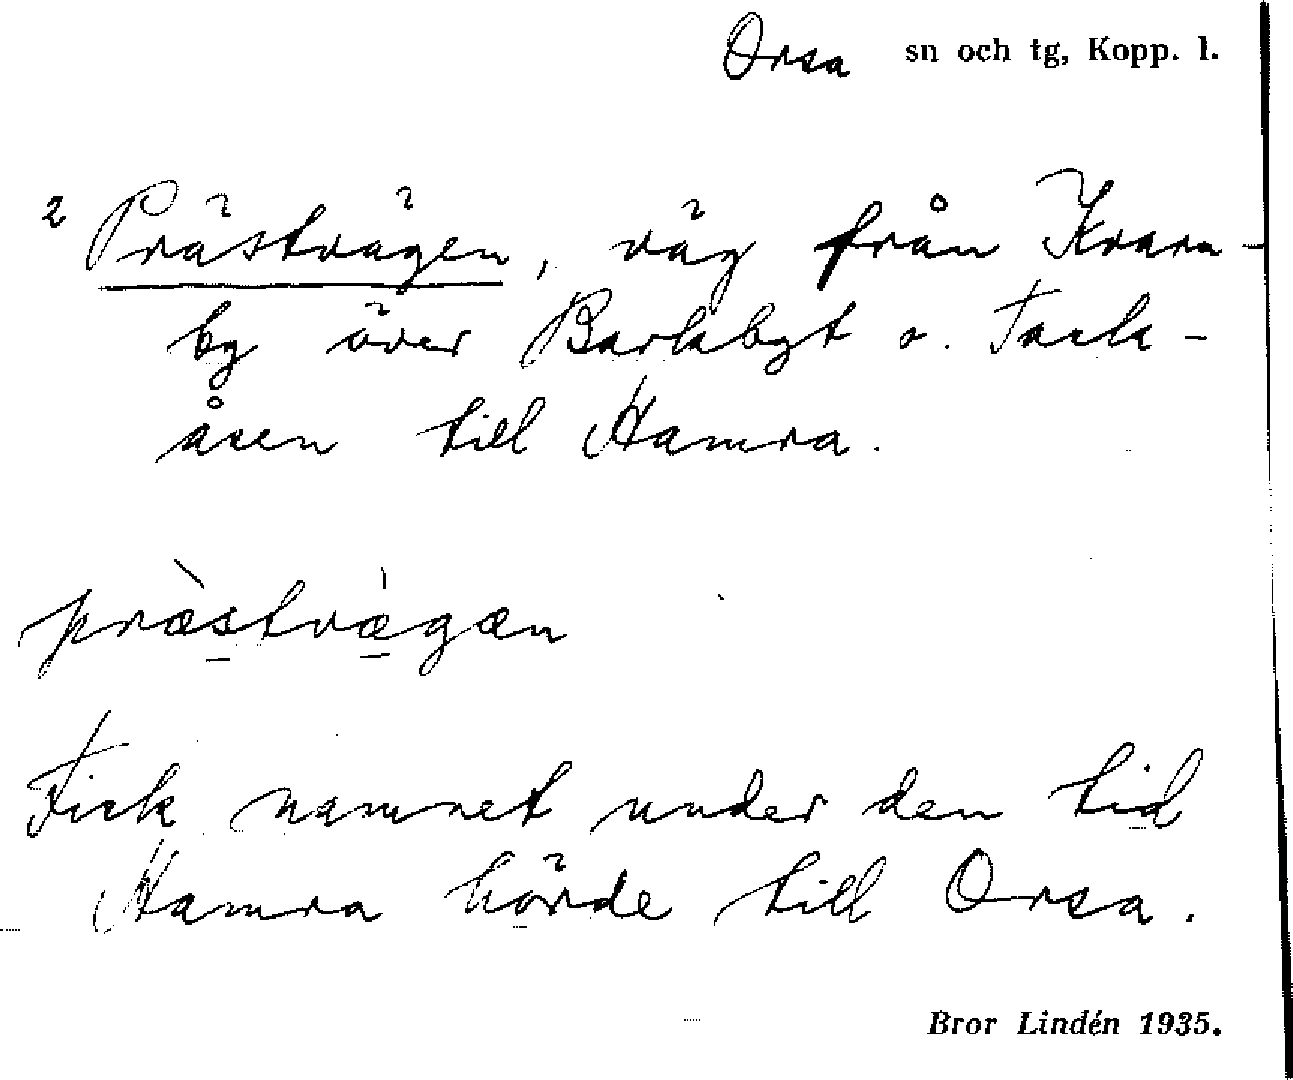 Orsa sn och tg, Kopp. l.
2 Prästvägen, väg från Kvarn-
by över o. Tack-
åsen till Hamra.
præ̀s̠tvæ̠̀gæn
Fick namnet under den tid
Hamra hörde till Orsa.
Bror Lindén 1935.